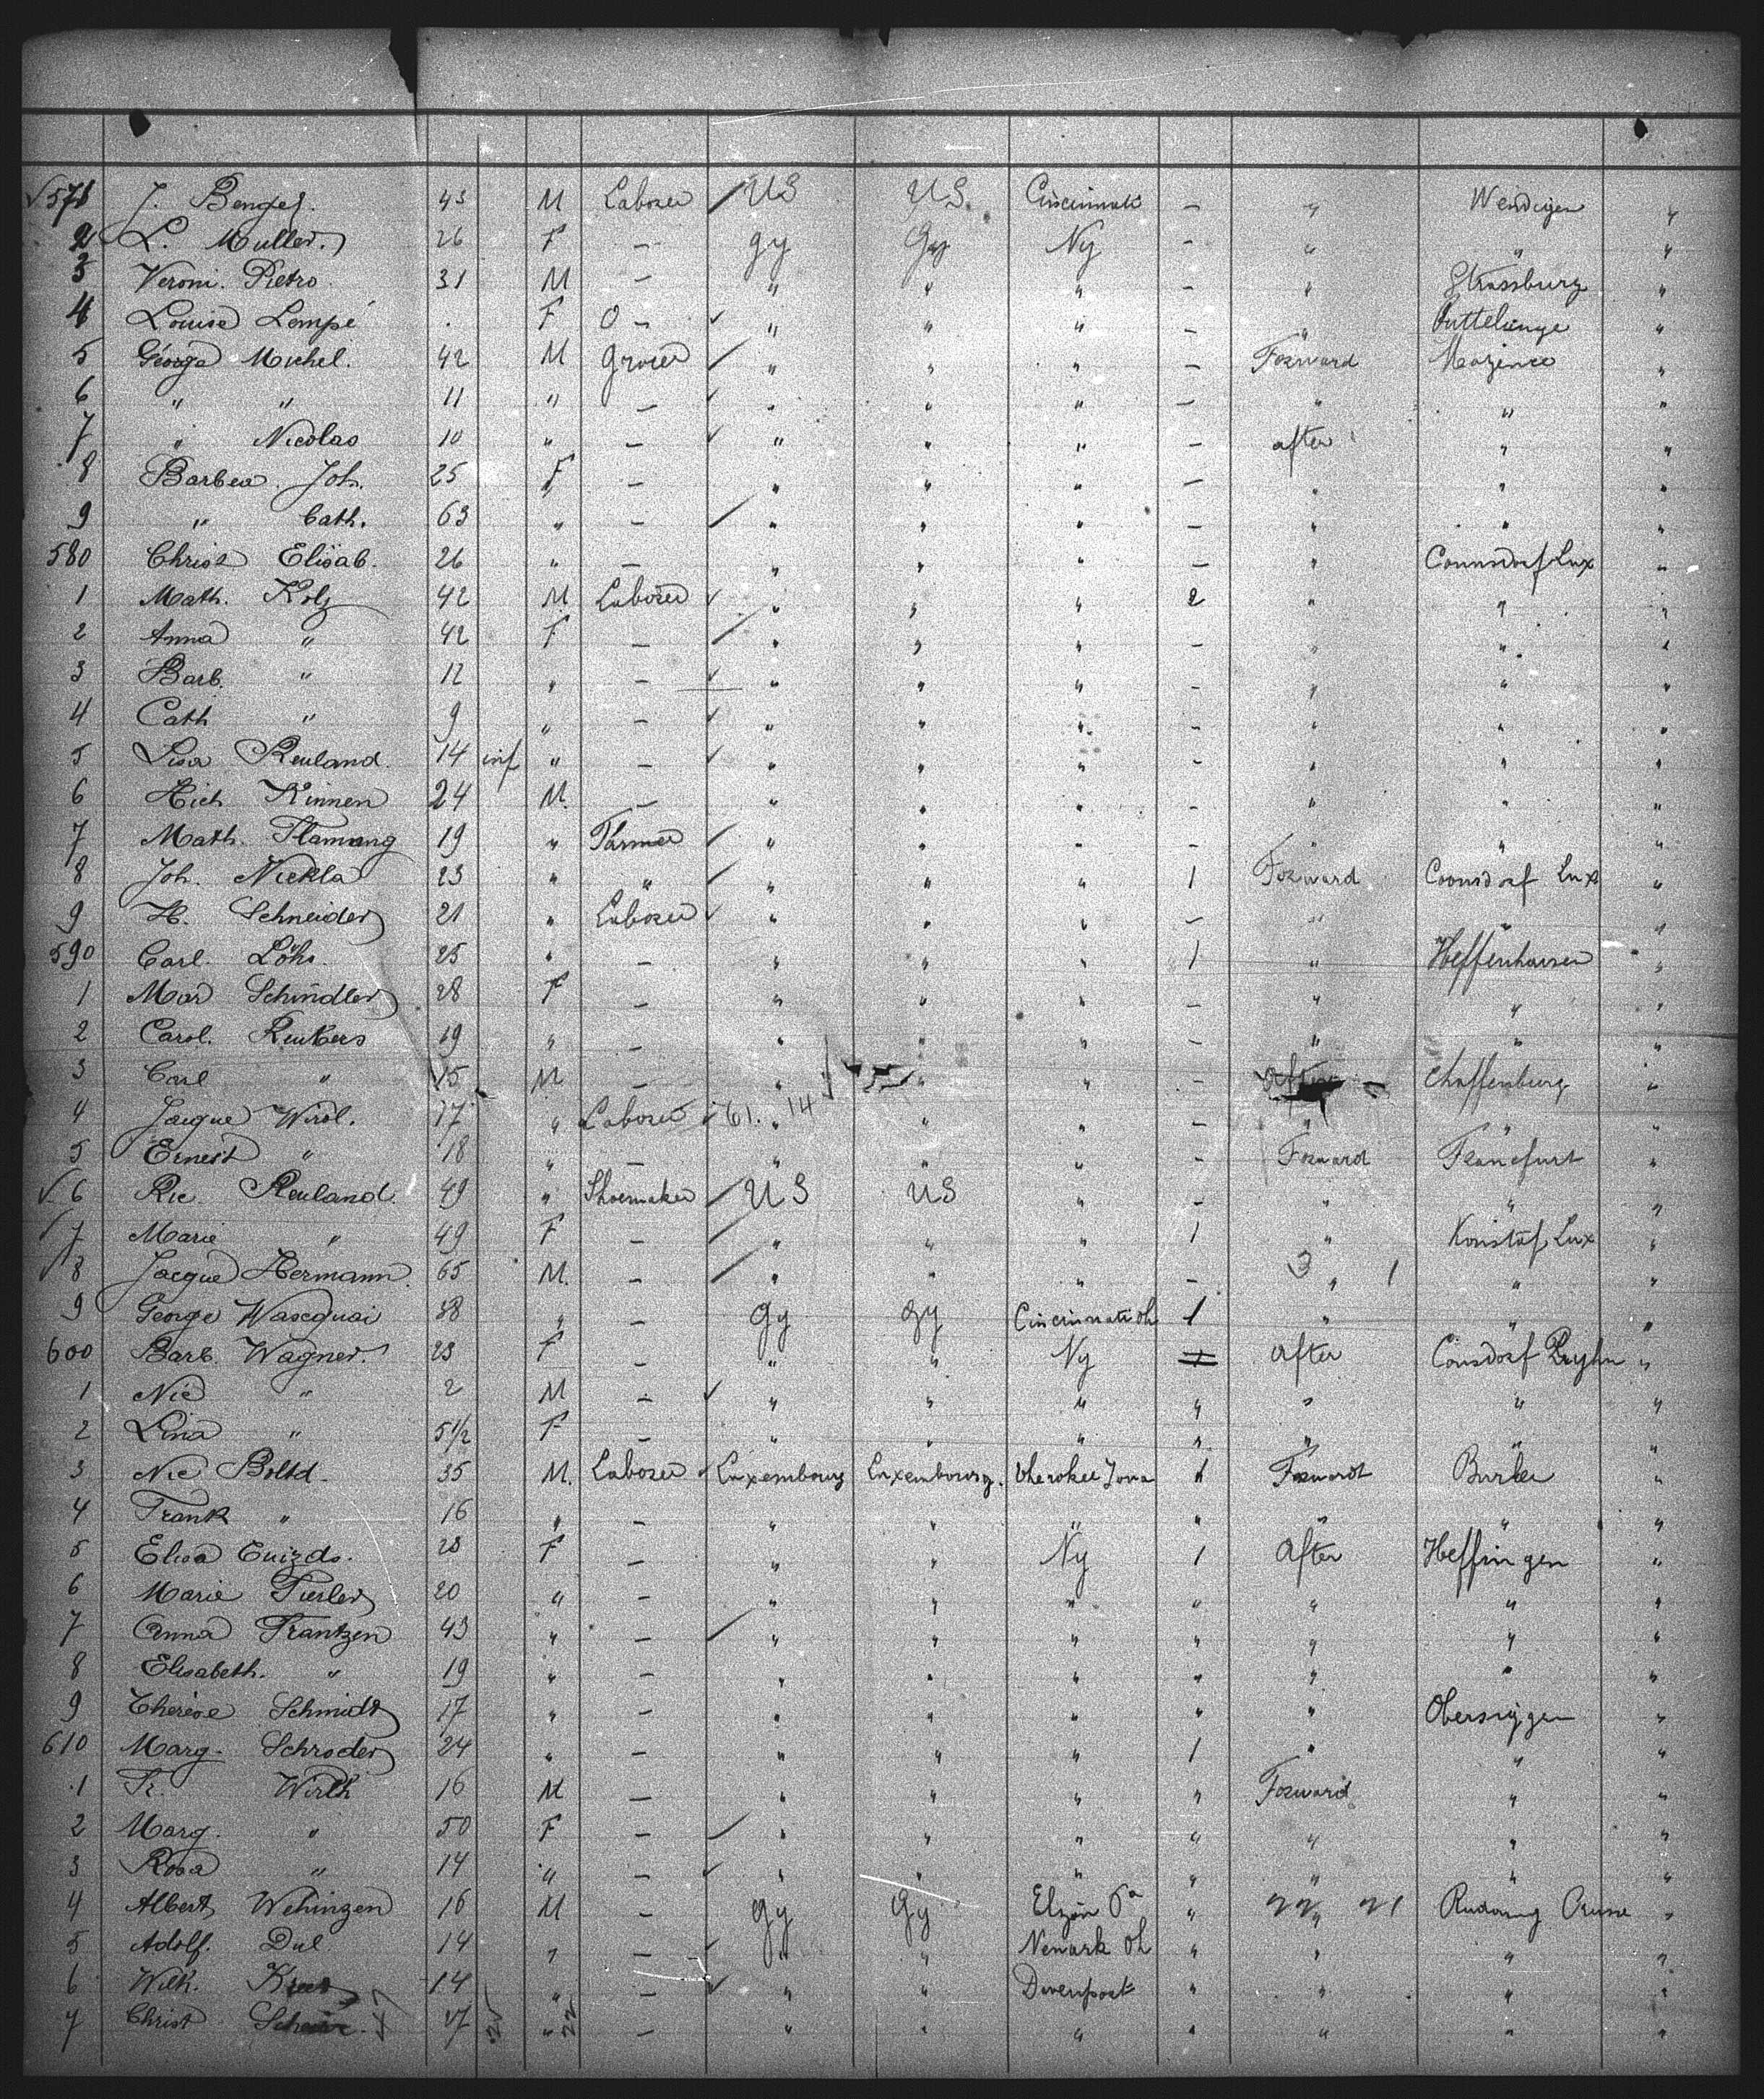 √ 571 J. Bengel. 43 M Laborer / US US Cincinnati — " Wendigen "
2 L. Muller. 26 F — gy Gy Ny — " " "
3 Veroni. Pietro 31 M — " " " — " Strassburg "
4 Louise Lempé . F O — ✓ " " " — " Puttelange "
5 George Michel. 42 M Grocer / " " " — Forward Mayence "
6 " " 11 " — ✓ " " " — " " "
7 " Nicolas 10 " — ✓ " " " — after " "
8 Barbea. Joh. 25 F — " " " — " " "
9 " Cath. 63 " — / " " " — " " "
580 Christ Elisab. 26 " — " " " — " Connsdorf Lux "
1 Math. Kolz 42 M Laborer ✓ " " " 2 " " "
2 Anna " 42 F — / " " " — " " "
3 Barb. " 12 " — ✓ " " " — " " "
4 Cath " 9 " — ✓ " " " — " " "
5 Lisa Reuland. 14 inf " — ✓ " " " — " " "
6 Mich Kinnen 24 M. — " " " — " " "
7 Math. Flamang 19 " Farmer / " " " — " " "
8 Joh. Nickla 23 " " / " " " 1 Forward Coonsdorf Lux "
9 H. Schneider 21 " Laborer ✓ " " " — " " "
590 Carl. Löhr. 25 " — " " " 1 " Heffenhausen "
1 Mar Schindler 28 F — " " " — " " "
2 Carol. Reuters 19 " — " " " — " " "
3 Carl " 15 M — " " " — After Chaffenburg "
4 Jacque Wirol. 17 " Laborer ✓ 61. 14 " " — " " "
5 Ernest " 18 " — " " " — Forward Francfurt "
√ 6 Ric. Reuland. 49 " Shoemaker / US US " — " " "
√ 7 Marie " 49 F — / " " " 1 " Konstaf, Lux "
√ 8 Jacque Hermann. 65 M. — / " " " — 3 " 1 " "
9 George Wascquai 38 " — gy gy Cincinnati Oh 1 " " "
600 Barb. Wagner. 23 F — " " Ny 1 after Consdorf "
1 Nic " 2 M — ✓ " " " " " " "
2 Lina " 5 1/2 F — " " " " " " "
3 Nic Boltd 35 M. Laborer ✓ Luxembourg Luxembourg. Cherokee Iowa 1 Forward "
4 Frank " 16 " — " " " " " " "
5 Elisa 28 F — " " Ny 1 After Heffingen "
6 Marie Tierler 20 " — " " " " " " "
7 Anna Frantzen 43 " — / " " " " " " "
8 Elisabeth. " 19 " — " " " " " " "
9 Therese Schmidt 17 " — " " " " " "
610 Marg. Schroder 24 " — " " " 1 " " "
1 Fr. Wirth 16 M — " " " " Forward " "
2 Marg. " 50 F — / " " " " " " "
3 Rosa " 14 " — ✓ " " " " " " "
4 Albert Wehingen 16 M — gy Gy Pa " 22 " 21 "
5 Adolf. Dul 14 " — ✓ " " Newark Oh " " " "
6 Wilh. 14 " — ✓ " " Davenport " " " "
7 Christ 17 " 22 — " " " " " " "